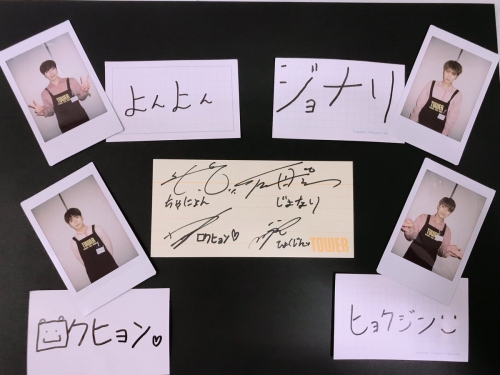 よんよん
ジョナリ
ちゃにょん
じょなり
ロクヒョン♡
ひょくじん
TOWER
ロクヒョン♡
ヒョクジン